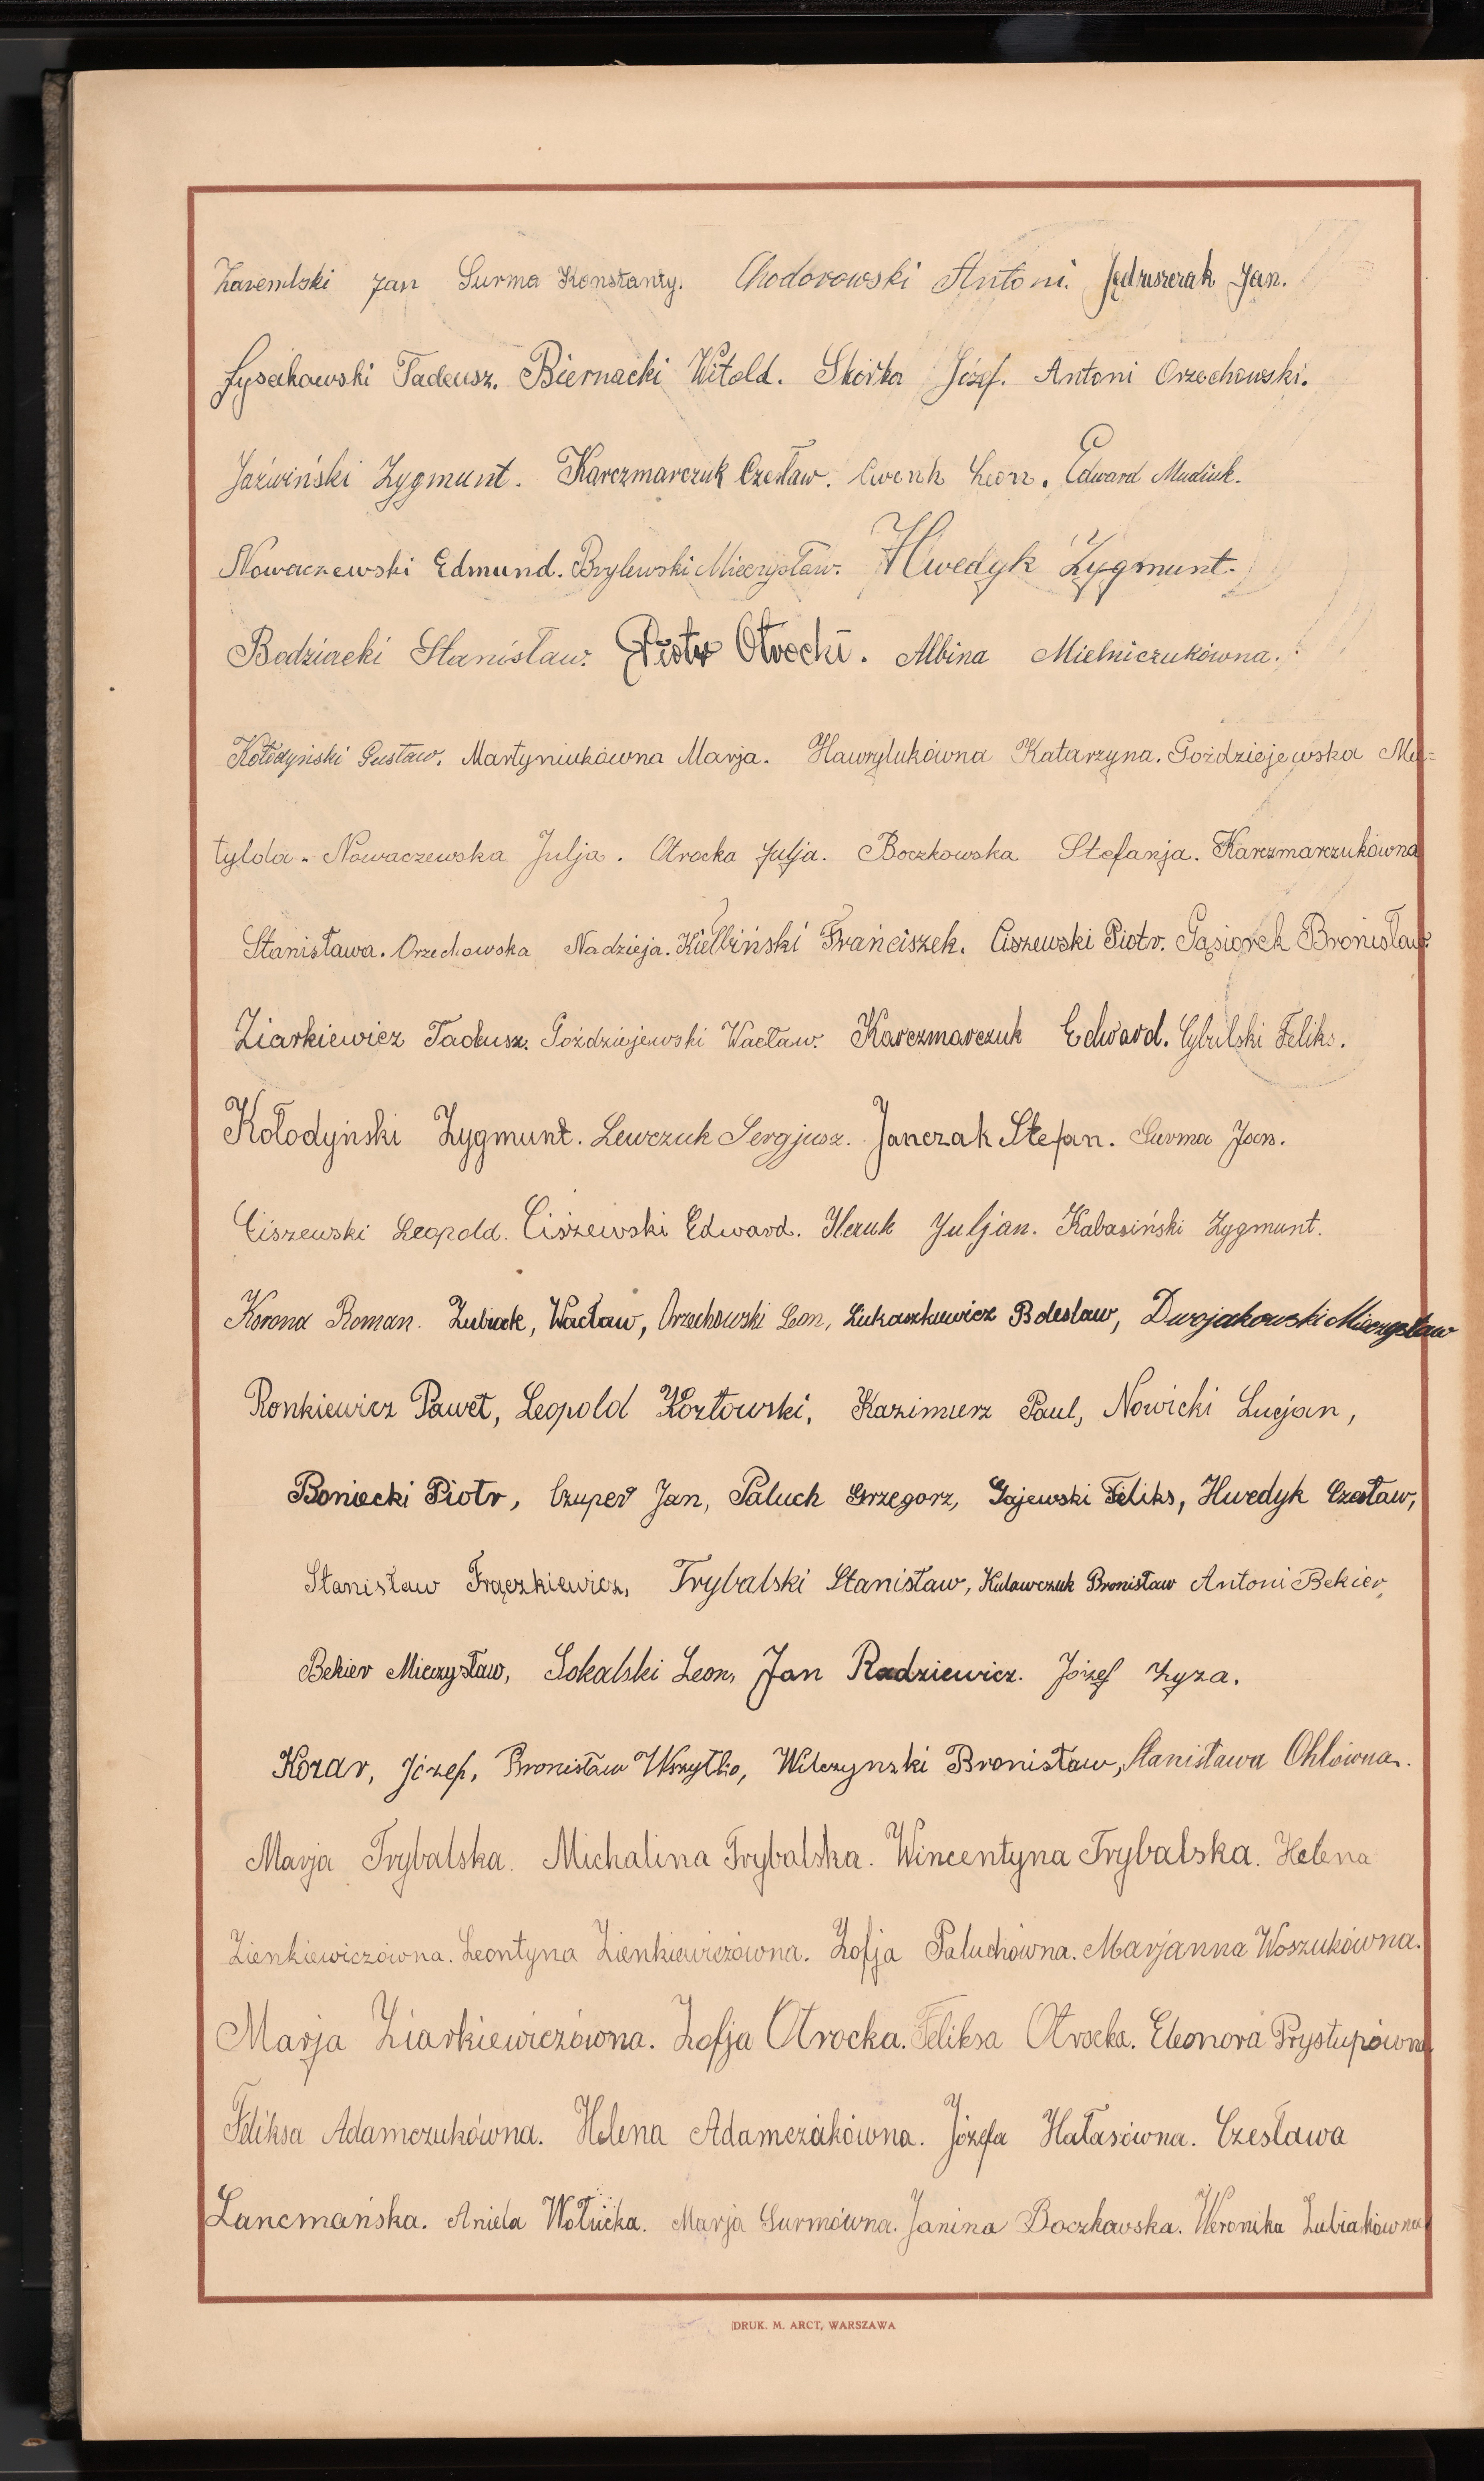 Zarembski Jan Surma Konstanty. Chodorowski Antoni. Jędruszczak Jan.
Łysakowski Tadeusz. Biernacki Witold. Skórka Józef. Antoni Orzechowski.
Jaźwiński Zygmunt. Karczmarczuk Czesław. Cwenk Leon. Edward Mudiuk.
Nowaczewski Edmund. Brylewski Mieczysław. Hwedyk Zygmunt.
Bodziacki Stanisław. Piotr Otrocki. Albina Mielniczukówna.
Kołodyński Gustaw. Martyniukówna Marja. Hawrylukówna Katarzyna. Goździejewska Ma=
tylda. Nowaczewska Julja. Otrocka Julja. Boczkowska Stefanja. Karczmarczukówna
Stanisława. Orzechowska Nadzieja. Kiełbiński Franciszek. Ciszewski Piotr. Gąsiorek Bronisław.
Ziarkiewicz Tadeusz. Goździejewski Wacław. Karczmarczuk Edward. Cybulski Feliks.
Kołodyński Zygmunt. Lewczuk Sergjusz. Janczak Stefan. Surma Jan.
Ciszewski Leopold. Ciszewski Edward. Ilczuk Juljan. Kabasiński Zygmunt.
Korona Roman. Zubiak, Wacław, Orzechowski Leon, Łukaszkiewicz Bolesław, Dwojakowski Mieczysław
Ronkiewicz Paweł, Leopold Kozłowski, Kazimierz Paul, Nowicki Lucjan,
Boniecki Piotr, Czuper Jan, Paluch Grzegorz, Gajewski Feliks, Hwedyk Czesław,
Stanisław Frączkiewicz, Trybalski Stanisław, Kulawczuk Bronisław Antoni Bekier,
Bekier Mieczysław, Sokalski Leon, Jan Radziewicz. Józef Łyza.
Kozar, Józef, Bronisław Wszytko, Wilczynski Bronisław, Stanisława Ohlówna.
Marja Trybalska. Michalina Trybalska. Wincentyna Trybalska. Helena
Zienkiewiczówna. Leontyna Zienkiewiczówna. Zofja Paluchówna. Marjanna Woszukówna.
Marja Ziarkiewiczówna. Zofja Otrocka. Feliksa Otrocka. Eleonora Prystupówna
Feliksa Adamczukówna. Helena Adamczakówna. Józefa Hałasówna. Czesława
Lancmańska. Aniela Wołucka. Marja Surmówna. Janina Boczkowska. Weronika Zubiakówna
DRUK. M. ARCT, WARSZAWA